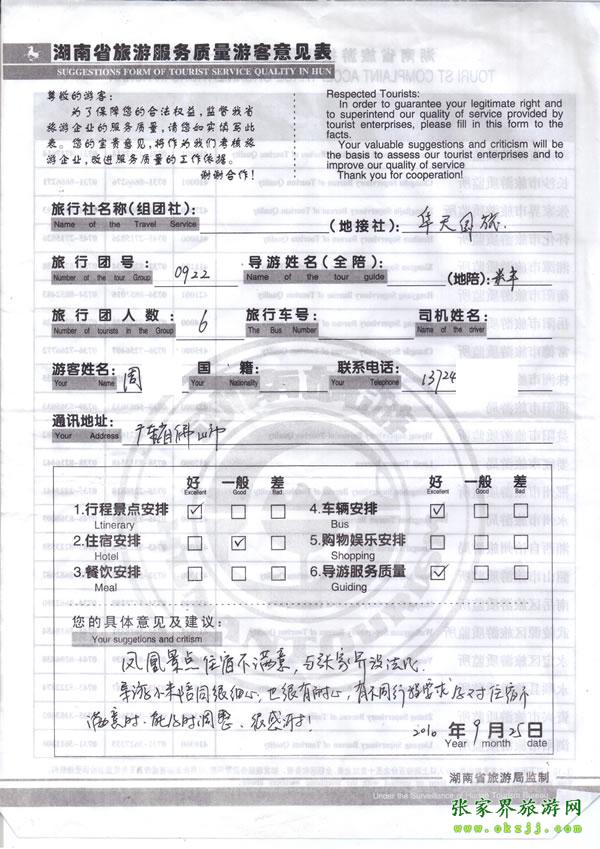 湖南省旅游服务质量游客意见表
SUGGESTIONS FORM OF TOURIST SERVICE QUALITY IN HUN
尊敬的游客：
为了保障您的合法权益，监督我省
旅游企业的服务质量，请您如实填写此
表。您的宝贵意见，将作为我们考核旅
游企业，改进服务质量的工作依据。
谢谢合作！
Respected Tourists:
In order to guarantee your legitimate right and
to superintend our quality of service provided by
tourist enterprises, please fill in this form to the
facts.
Your valuable suggestions and criticism will
be the basis to assess our tourist enterprises and to
improve our quality of service
Thank you for cooperation!
旅行社名称(组团社)：
Name of the Travel Service
(地接社)：中天国旅
旅行团号：0922
Number of the tour Group
导游姓名(全陪)：
Name of the tour guide
(地陪)：
旅行团人数：6
Number of tourists in the Group
旅行车号：
The Bus Number
司机姓名：
Name of the driver
游客姓名：周
Your Name
国籍：
Your Nationality
联系电话：13724
Your Telephone
通讯地址：广东省佛山市
Your Address
好 一般 差 好 一般 差
Excellent Good Bad Excellent Good Bad
1.行程景点安排 4.车辆安排
Ltinerary Bus
2.住宿安排 5.购物娱乐安排
Hotel Shopping
3.餐饮安排 6.导游服务质量
Meal Guiding
您的具体意见及建议：
Your suggetions and critism
凤凰景点住宿不满意，与张家界没法比.
导游小李陪同很细心，也很有耐心，有不同行程要求及对住宿不
满意时，能及时调整，很感谢！
2010年9月25日
Year month date
湖南省旅游局监制
Under the Surveillance of Hunan Tourism Bureau
张家界旅游网
www.okzjj.com